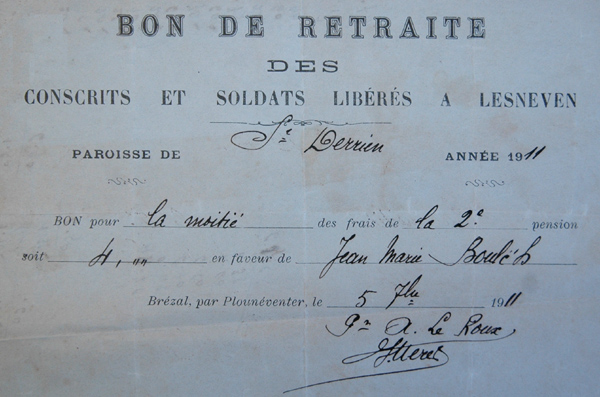 BON DE RETRAITE
DES
CONSCRITS ET SOLDATS LIBÉRÉS A LESNEVEN
PAROISSE DE St Derrien ANNÉE 1911
BON pour la moitié des frais de la 2e pension
soit 4, "" en faveur de Jean Marie Boulc'h
Brézal, par Plounéventer, le 5 7bre 1911
Pr A. Le Roux